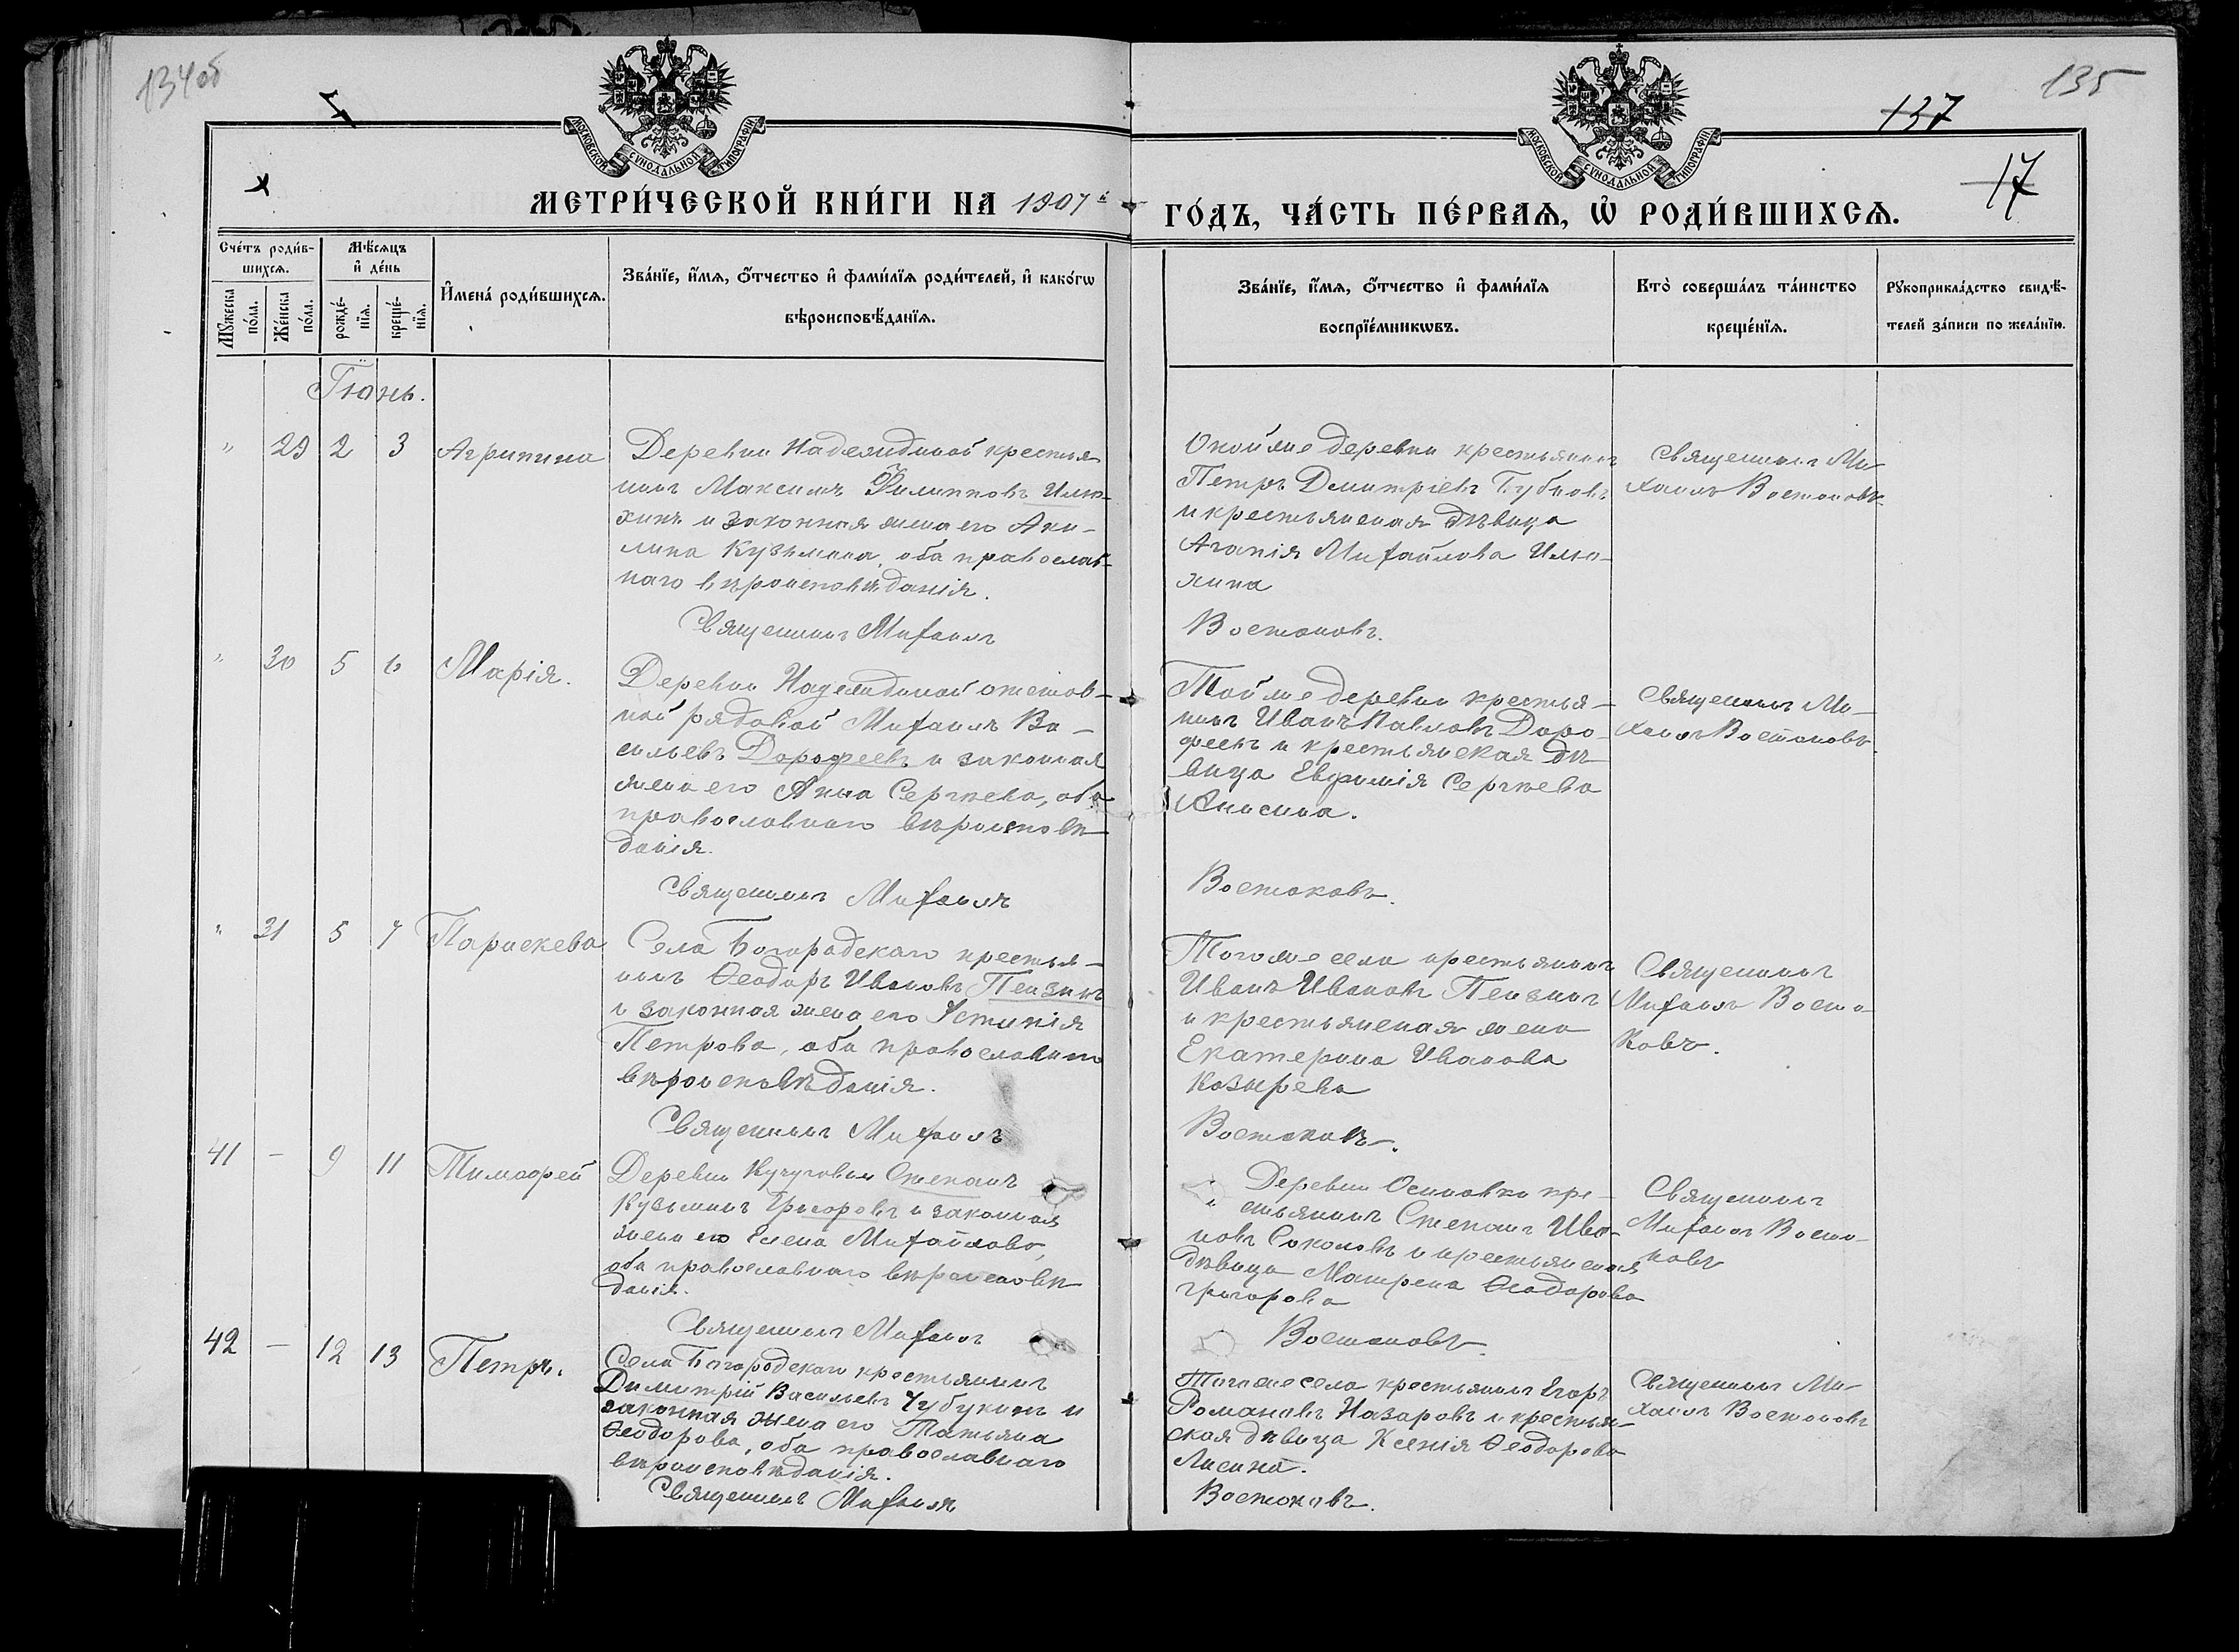 134об
135
137
17
МОСКОВСКОЙ СУНОДАЛЬНОЙ ТИПОГРАФІИ
МОСКОВСКОЙ СУНОДАЛЬНОЙ ТИПОГРАФІИ
МЕТРИ́ЧЕСКОЙ КНИ́ГИ НА 1907й ГО́ДЪ, ЧА́СТЬ ПЕ́РВАѦ, Ѡ҆ РОДИ́ВШИХСѦ.
Сче́тъ роди́в-
шихсѧ.
Мꙋ́жеска по́ла.
Же́нска по́ла.
Мѣ́сѧцъ
и҆ де́нь
рожде́-
нїѧ.
креще́-
нїѧ.
И҆мена̀ роди́вшихсѧ.
Зва́нїе, и҆́мѧ, ѻ҆́тчество и҆ фами́лїѧ роди́телей, и҆ како́гѡ
вѣроисповѣ́данїѧ.
Зва́нїе, и҆́мѧ, ѻ҆́тчество и҆ фами́лїѧ
воспрїе́мникѡвъ.
Кто̀ соверша́лъ та́инство
креще́нїѧ.
Рꙋкоприкла́дство свидѣ́-
телей за́писи по жела́нїю.
Іюнь.
" 29 2 3 Агрипина
Деревни Надеждиной крестья
нинъ Максимъ Филипповъ Илю-
хинъ и законная жена его Аки-
лина Кузьмина, оба православ-
наго вѣроисповѣданія.
Священникъ Михаилъ
Оной же деревни крестьянинъ
Петръ Димитріевъ Бубновъ
и крестьянская дѣвица
Агапія Михайлова Илю-
хина
Востоковъ.
Священникъ Ми-
хаилъ Востоковъ
" 30 5 6 Марія.
Деревни Надеждиной отстав-
ной рядовой Михаилъ Ва-
сильевъ Дорофеевъ и законная
жена его Анна Сергѣева, оба
православнаго вѣроисповѣ
данія.
Священникъ Михаилъ
Той же деревни крестья-
нинъ Иванъ Павловъ Доро-
феевъ и крестьянская дѣ-
вица Евфимія Сергѣева
Анисина.
Востоковъ.
Священникъ Ми-
хаилъ Востоковъ.
" 31 5 7 Параскева
Села Богородскаго крестья-
нинъ Ѳеодоръ Ивановъ Пензинъ
и законная жена его Устинія
Петрова, оба православнаго
вѣроисповѣданія.
Священникъ Михаилъ
Того же села крестьянинъ
Иванъ Ивановъ Пензинъ
и крестьянская жена
Екатерина Иванова
Козырева
Востоковъ.
Священникъ
Михаилъ Восто-
ковъ.
41 - 9 11 Тимофей
Деревни Степанъ
Кузьминъ Григоровъ и законная
жена его Елена Михайлова,
оба православнаго вѣроисповѣ
данія.
Священникъ Михаилъ
Деревни Осиновки кре-
стьянинъ Степанъ Ива-
новъ Соколовъ и крестьянская
дѣвица Матрена Ѳеодорова
Григорова
Востоковъ.
Священникъ
Михаилъ Восто-
ковъ
42 - 12 13 Петръ.
Села Богородскаго крестьянинъ
Димитрій Васильевъ Чубукинъ и
законная жена его Татьяна
Ѳеодорова, оба православнаго
вѣроисповѣданія.
Священникъ Михаилъ
Того же села крестьянинъ Егоръ
Романовъ Назаровъ и крестьян-
ская дѣвица Ксенія Ѳеодорова
Лисина.
Востоковъ.
Священникъ Ми-
хаилъ Востоковъ